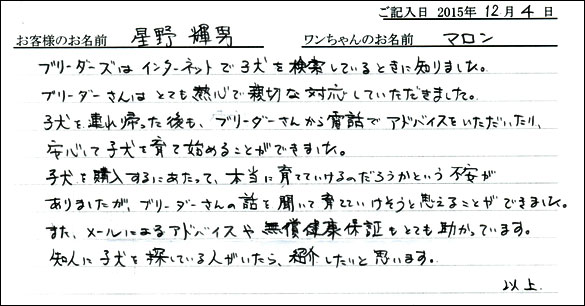 ご記入日 2015年 12月 4日
お客様のお名前 星野 輝男 ワンちゃんのお名前 マロン
ブリーダーズはインターネットで子犬を検索しているときに知りました。
ブリーダーさんはとても熱心で親切な対応していただきました。
子犬を連れ帰った後も、ブリーダーさんから電話でアドバイスをいただいたり、
安心して子犬を育て始めることができました。
子犬を購入するにあたって、本当に育てていけるのだろうかという不安が
ありましたが、ブリーダーさんの話を聞いて育てていけそうと思えることができました。
また、メールによるアドバイスや無償健康保証もとても助かっています。
知人に子犬を探している人がいたら、紹介したいと思います。
以上